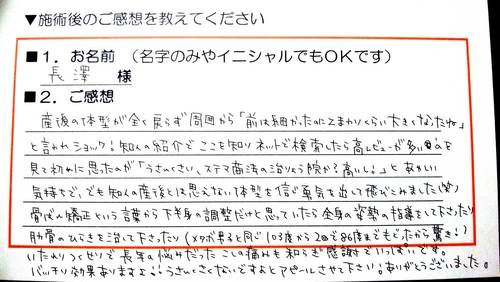 ▼施術後のご感想を教えてください
■1．お名前 （名字のみやイニシャルでもOKです）
長澤 様
■2．ご感想
産後の体型が全く戻らず周囲から「前は細かったのに2まわりくらい大きくなったね」
と言われショック！知人の紹介でここを知りネットで検索したら高レビューが多い
見て初めに思ったが「うさんくさい、ステマ商法の治りょう院かる高いし！」と あやしい
気持ちで、でも知人の産後とは思えない体型を信じ勇気を出して飛びこみました(笑)
骨ばん矯正という言葉から下半身の調整だけと思っていたら全身の姿勢の指導をして下さったり
肋骨のひらきを治して下さったり (メタボ男子と同じ103度から2回で86度までもどったから驚き！)
いたれりつくせりで 長年の悩みだった この痛みも和らぎ感謝でいっぱいです。
バッチリ効果ありますよ!!うさんくさくないですよとアピールさせて下さい。ありがとうございました。